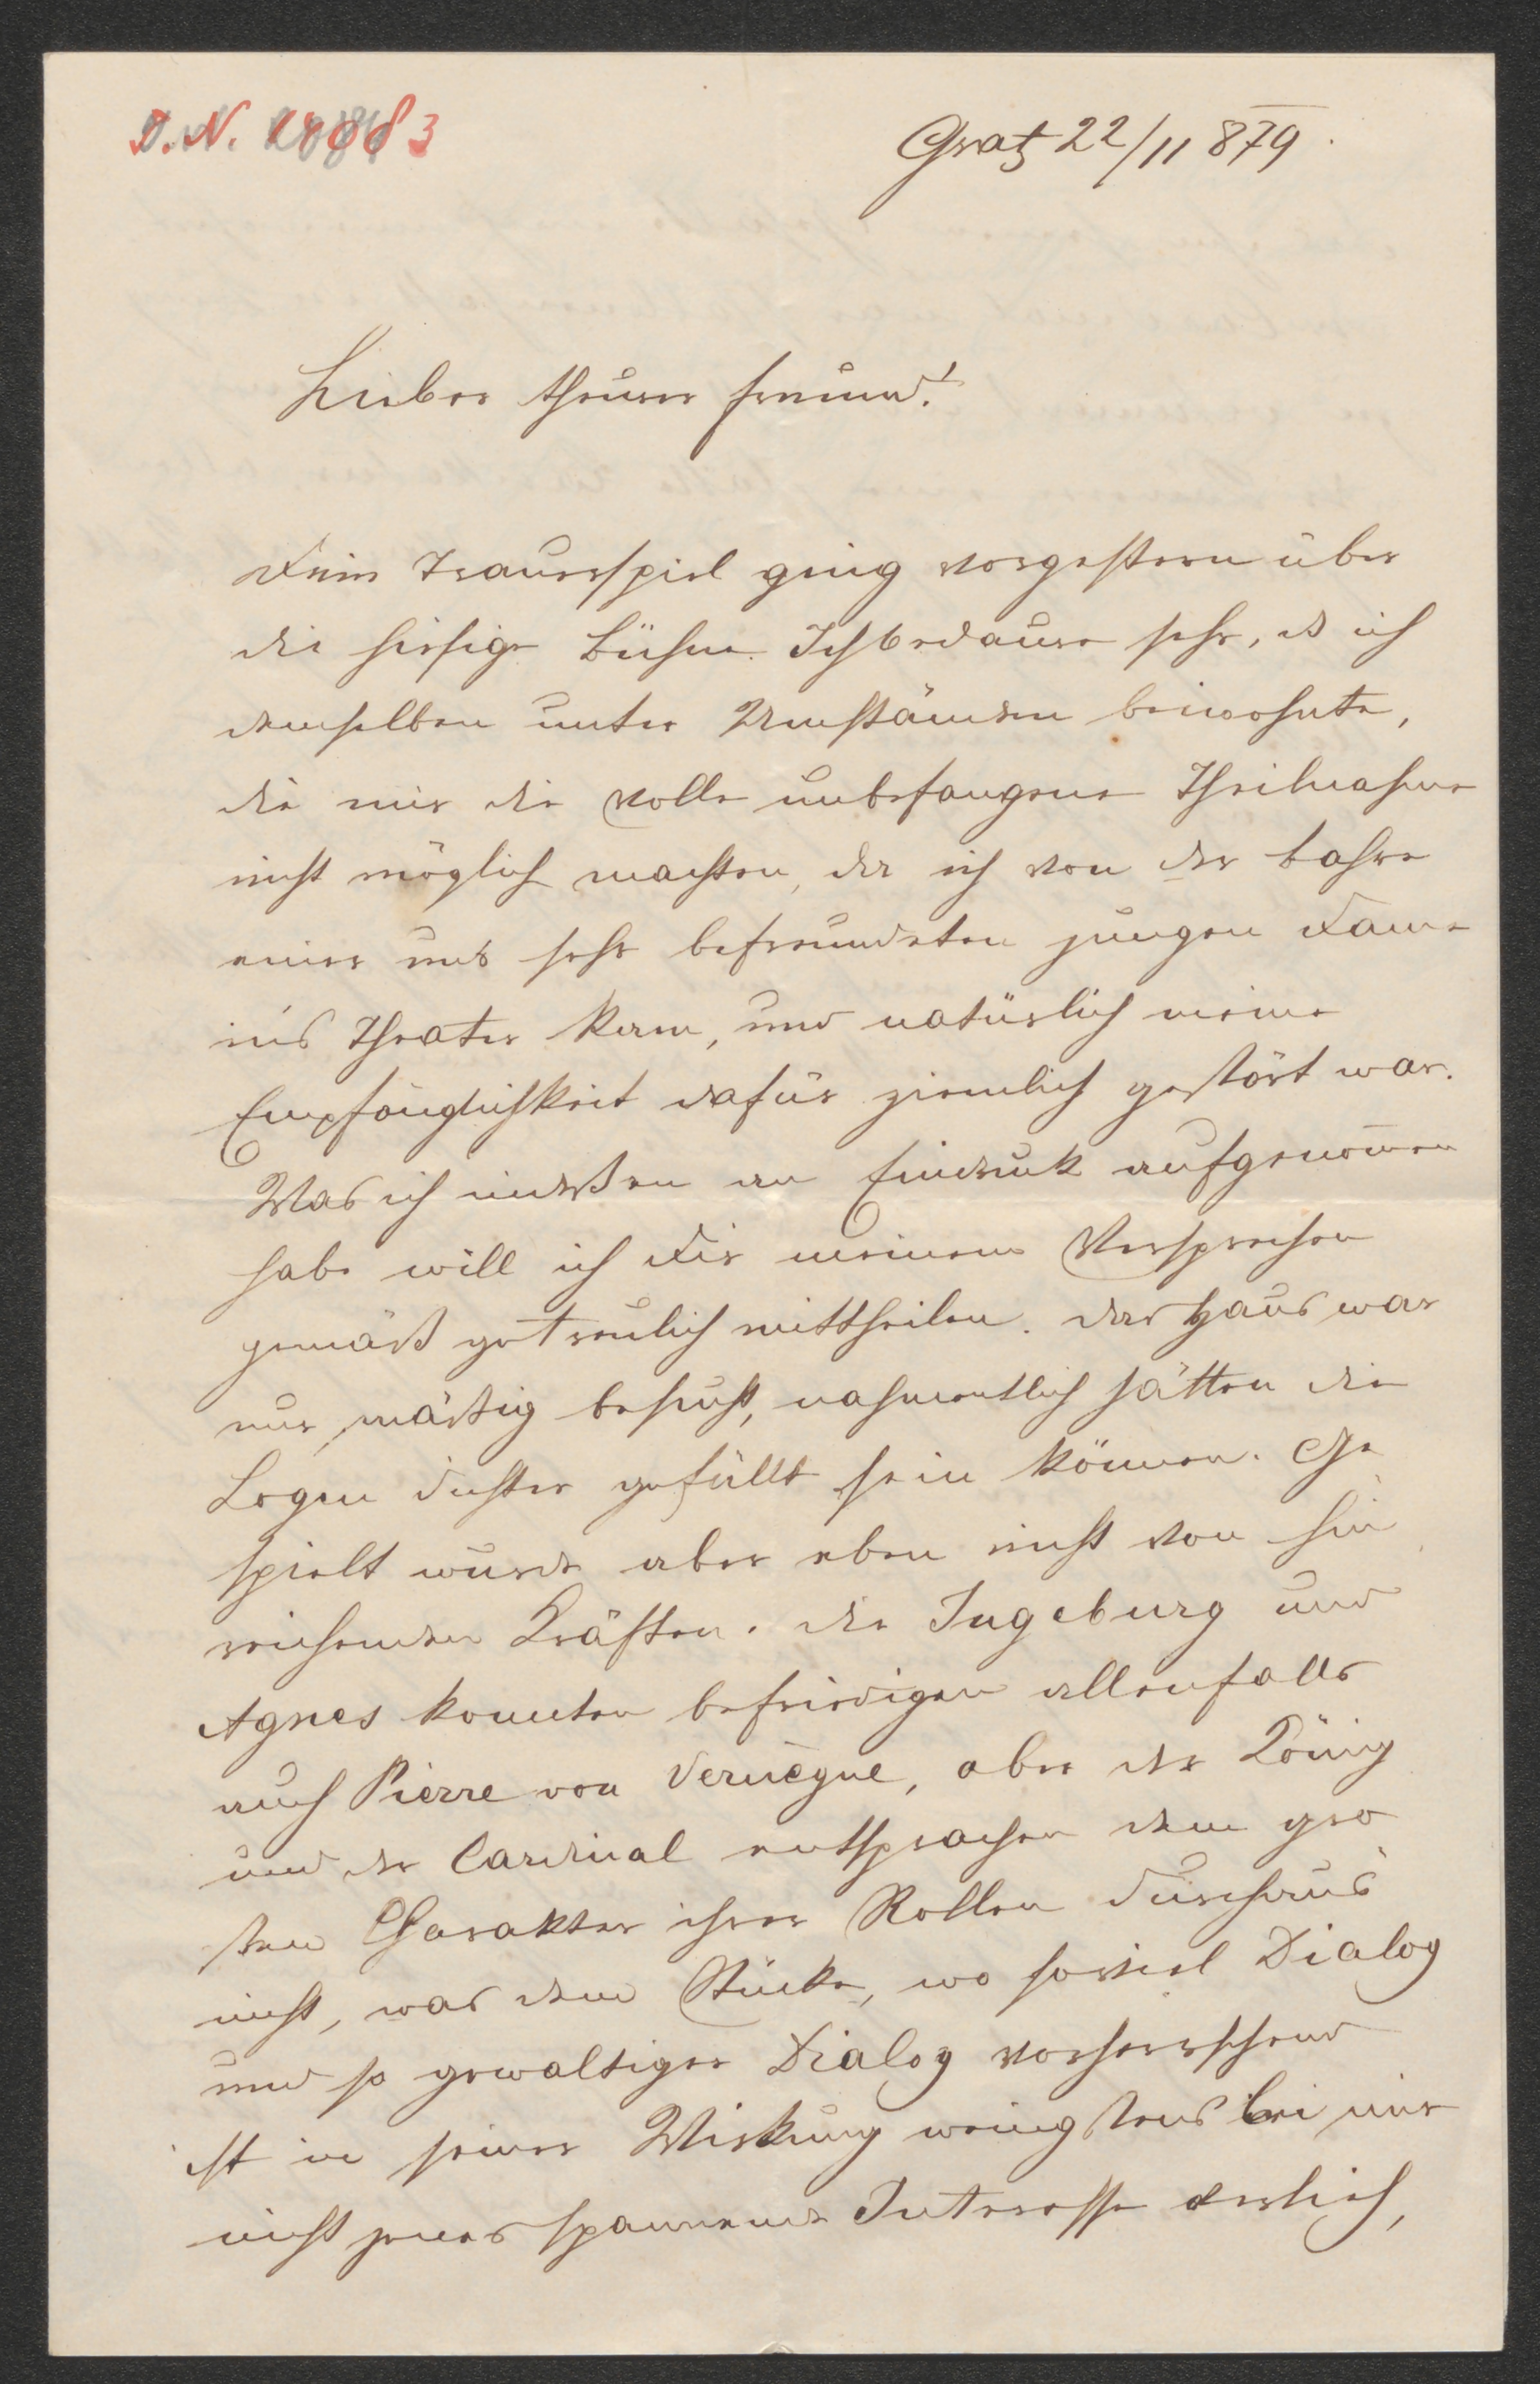 I.N. 18883
Gratz 22/11 879.
Lieber theurer Freund!
Dein Trauerspiel ging vorgestern über
die hiesige Bühne. Ich bedaure sehr, dß ich
demselben unter Umständen beiwohnte,
die mir die volle unbefangene Theilnahme
nicht möglich machten, da ich von der Bahre
einer uns sehr befreundeten jungen Dame
in's Theater kam, und natürlich meine
Empfänglichkeit dafür ziemlich gestört war.
Was ich indeßen an Eindruck aufgenom̅en
habe will ich Dir meinem Versprechen
gemäß getreulich mittheilen. Das Haus war
nur mäßig besucht, nahmentlich hätten die
Logen dichter gefüllt sein können. Ge
spielt wurde aber eben nicht von hin
reichenden Kräften. Die Ingeburg und
Agnes konnten befriedigen allenfalls
auch Pierre von Vernègue, aber der König
und der Cardinal entsprachen dem gro
ßen Charakter ihrer Rollen durchaus
nicht, was dem Stücke, wo soviel Dialog
und so gewaltiger Dialog vorherrschend
ist in seiner Wirkung wenigstens bei mir
nicht jenes spannende Interesse verlieh,